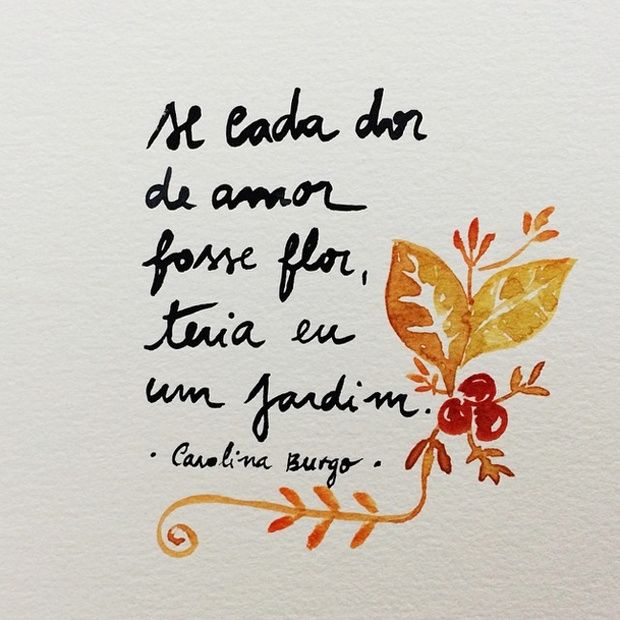 se cada dor
de amor
fosse flor,
teria eu
um jardim.
· Carolina Burgo ·